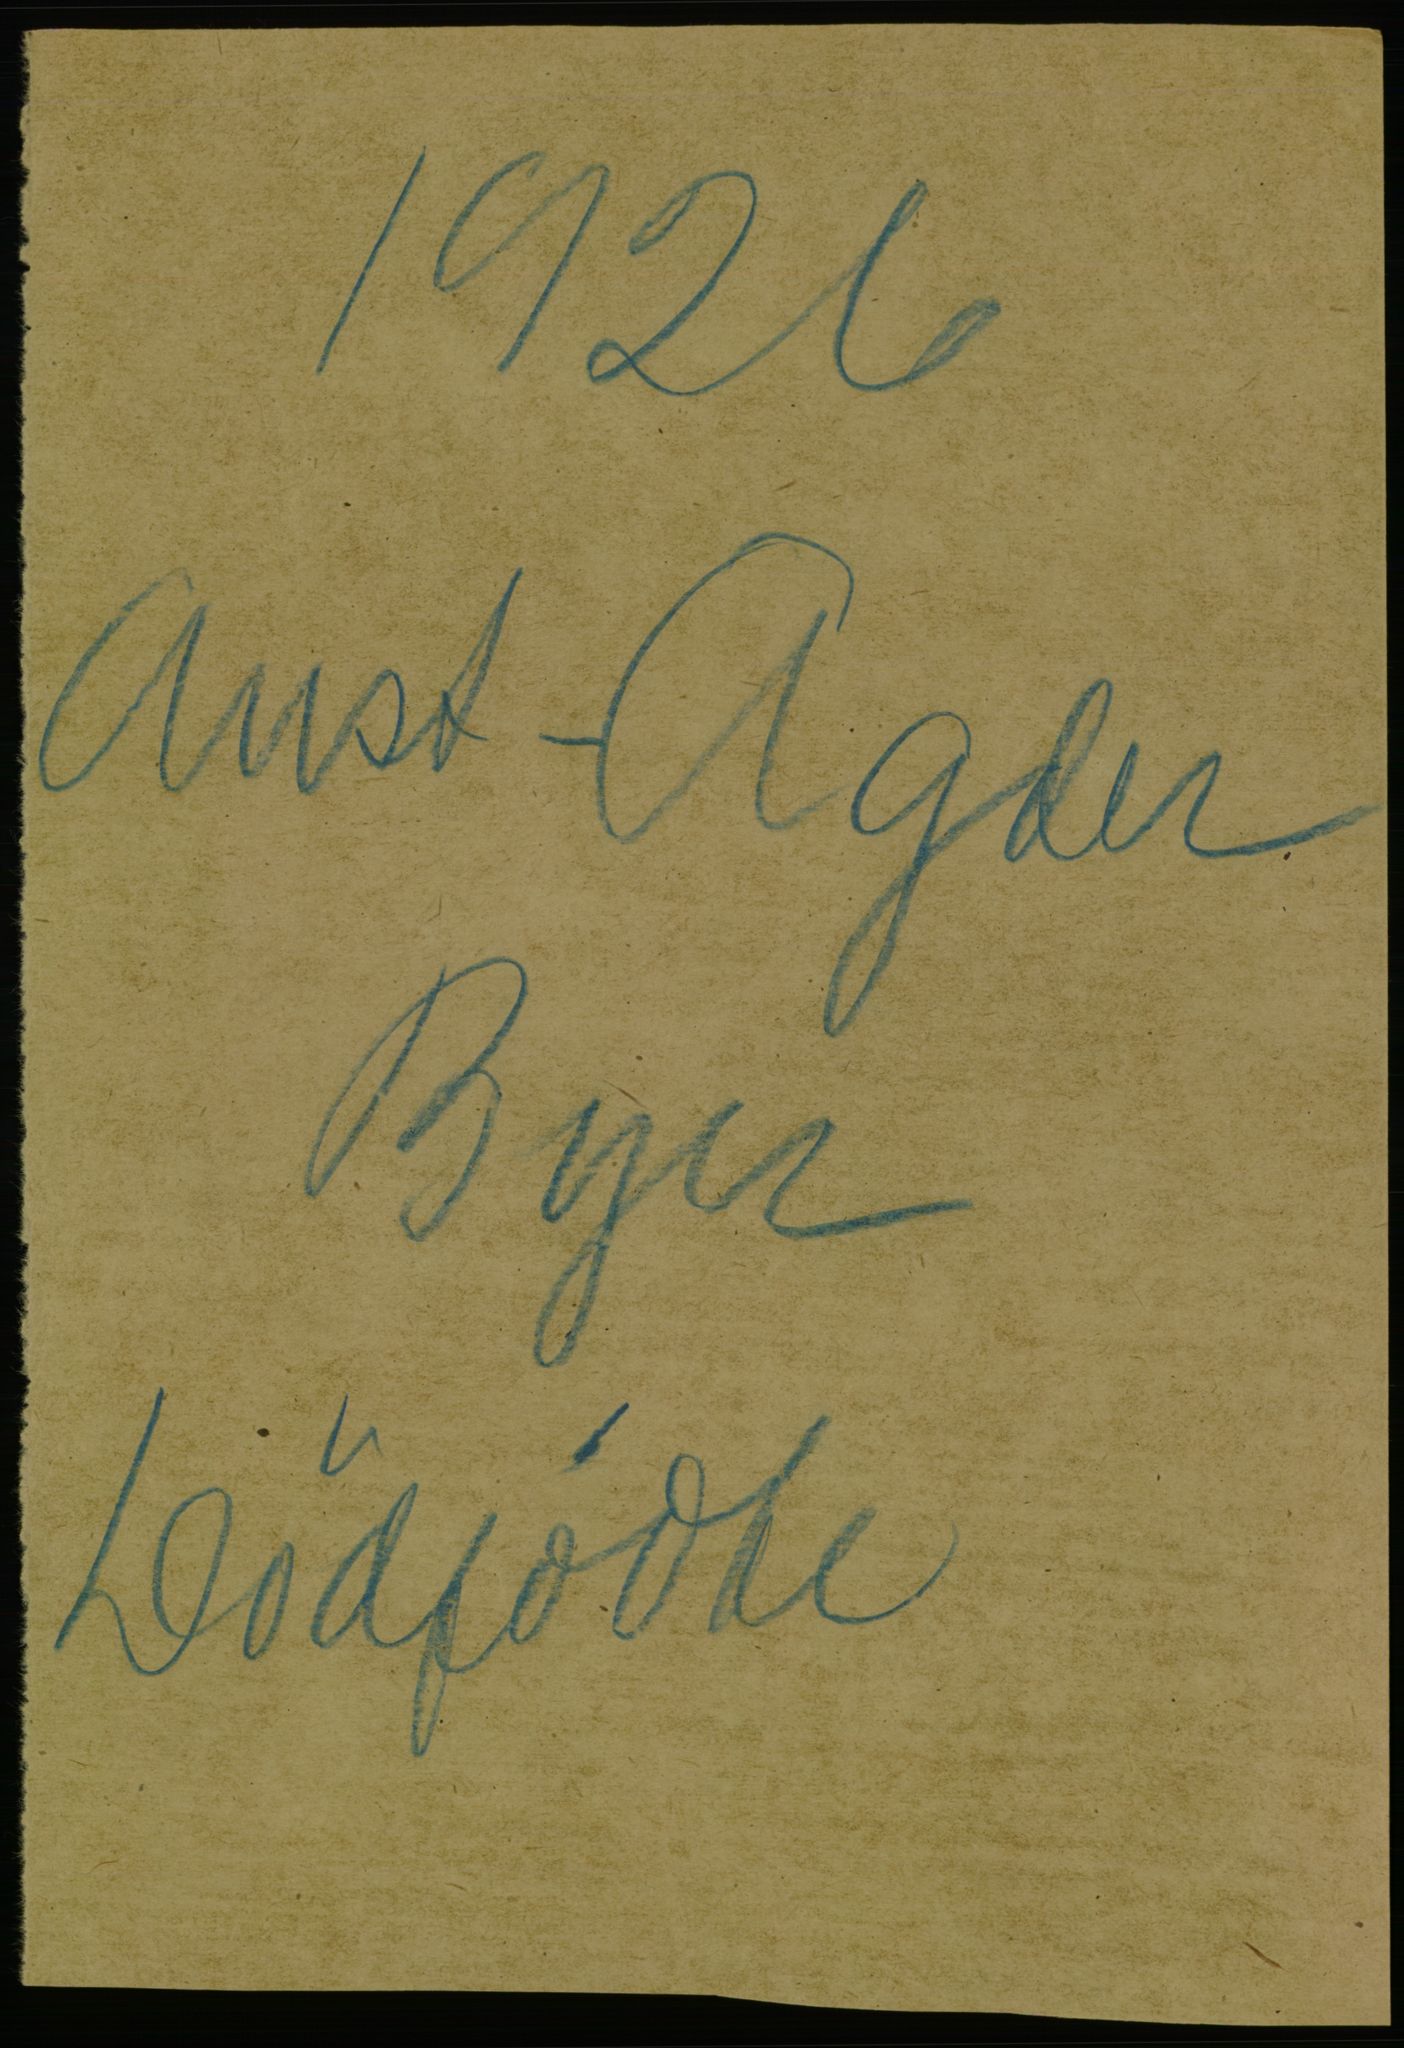 1926
Aust-Agder
Byer
Dödfödte